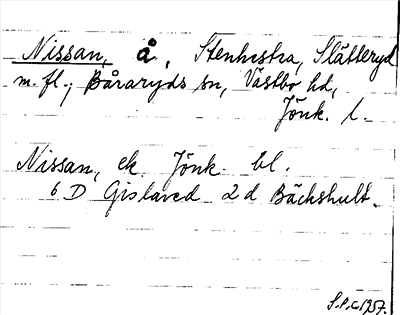 Nissan, å, Stenhestra, Slätteryd
m. fl., Båraryds sn, Västbo hd,
Jönk. l.
Nissan, ek. Jönk. bl.
6 D Gislaved 2 d Bäckshult.
S.P.C. 1957.